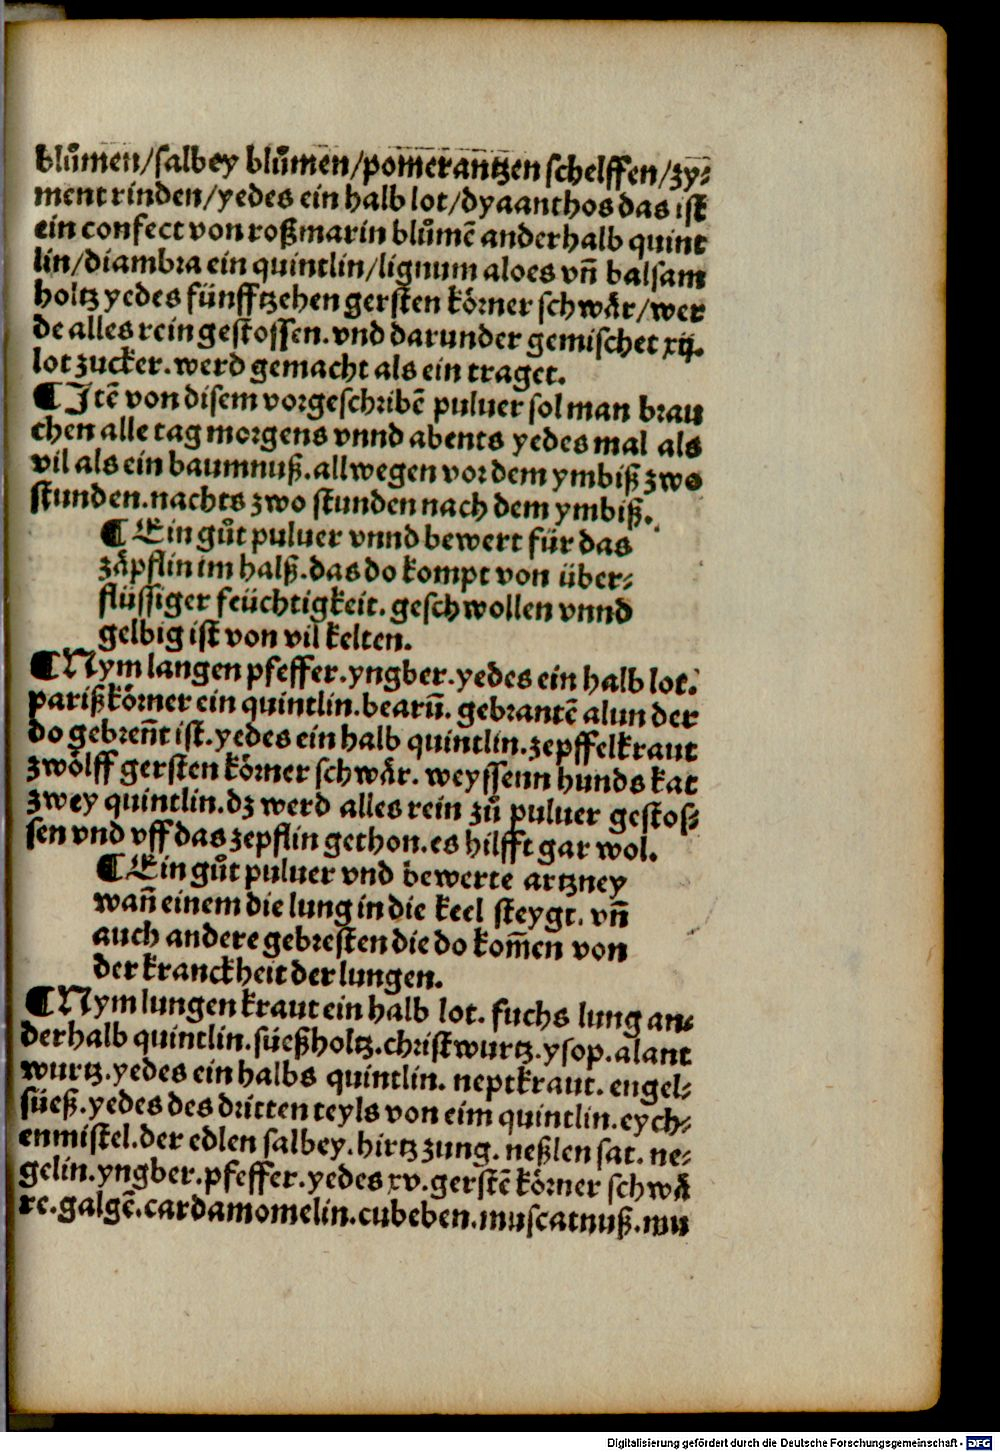 blůmen/salbey blůmen/pomerantzen schelffen/zy⸗
ment rinden/yedes ein halb lot/dyaanthos das ist
ein confect von roßmarin blůmē anderhalb quint
lin/diambra ein quintlin/lignum aloes vn̄ balsam
holtz yedes fünfftzehen gersten körner schwår/wer
de alles rein gestossen.vnd darunder gemischet xij.
lot zucker.werd gemacht als ein traget.
¶Itē von disem vorgeschribē puluer sol man brau
chen alle tag morgens vnnd abents yedes mal als
vil als ein baumnuß.allwegen vor dem ymbiß zwo
stunden.nachts zwo stunden nach dem ymbiß.
¶Ein gůt puluer vnnd bewert für das
zåpflin im halß.das do kompt von über⸗
flüssiger feüchtigkeit.geschwollen vnnd
gelbig ist von vil kelten.
¶Nym langen pfeffer.yngber.yedes ein halb lot.
parißkörner ein quintlin.bearū.gebrantē alun der
do gebren̄t ist.yedes ein halb quintlin.zepffelkraut
zwölff gersten körner schwår.weyssenn hunds kat
zwey quintlin.dz werd alles rein zů puluer gestos⸗
sen vnd vff das zepflin gethon.es hilfft gar wol.
¶Ein gůt puluer vnd bewerte artzney
wan̄ einem die lung in die keel steygt.vn̄
auch andere gebresten die do kom̄en von
der kranckheit der lungen.
¶Nym lungen kraut ein halb lot.fuchs lung an⸗
derhalb quintlin.süeßholtz.christwurtz.ysop.alant
wurtz.yedes ein halbs quintlin.neptkraut.engel⸗
süeß.yedes des dritten teyls von eim quintlin.eych⸗
enmistel.der edlen salbey.hirtz zung.neßlen sat.ne⸗
gelin.yngber.pfeffer.yedes xv.gerstē körner schwå
re.galgē.cardamomelin.cubeben.muscatnuß.mu
Digitalisierung gefördert durch die Deutsche Forschungsgemeinschaft - DFG